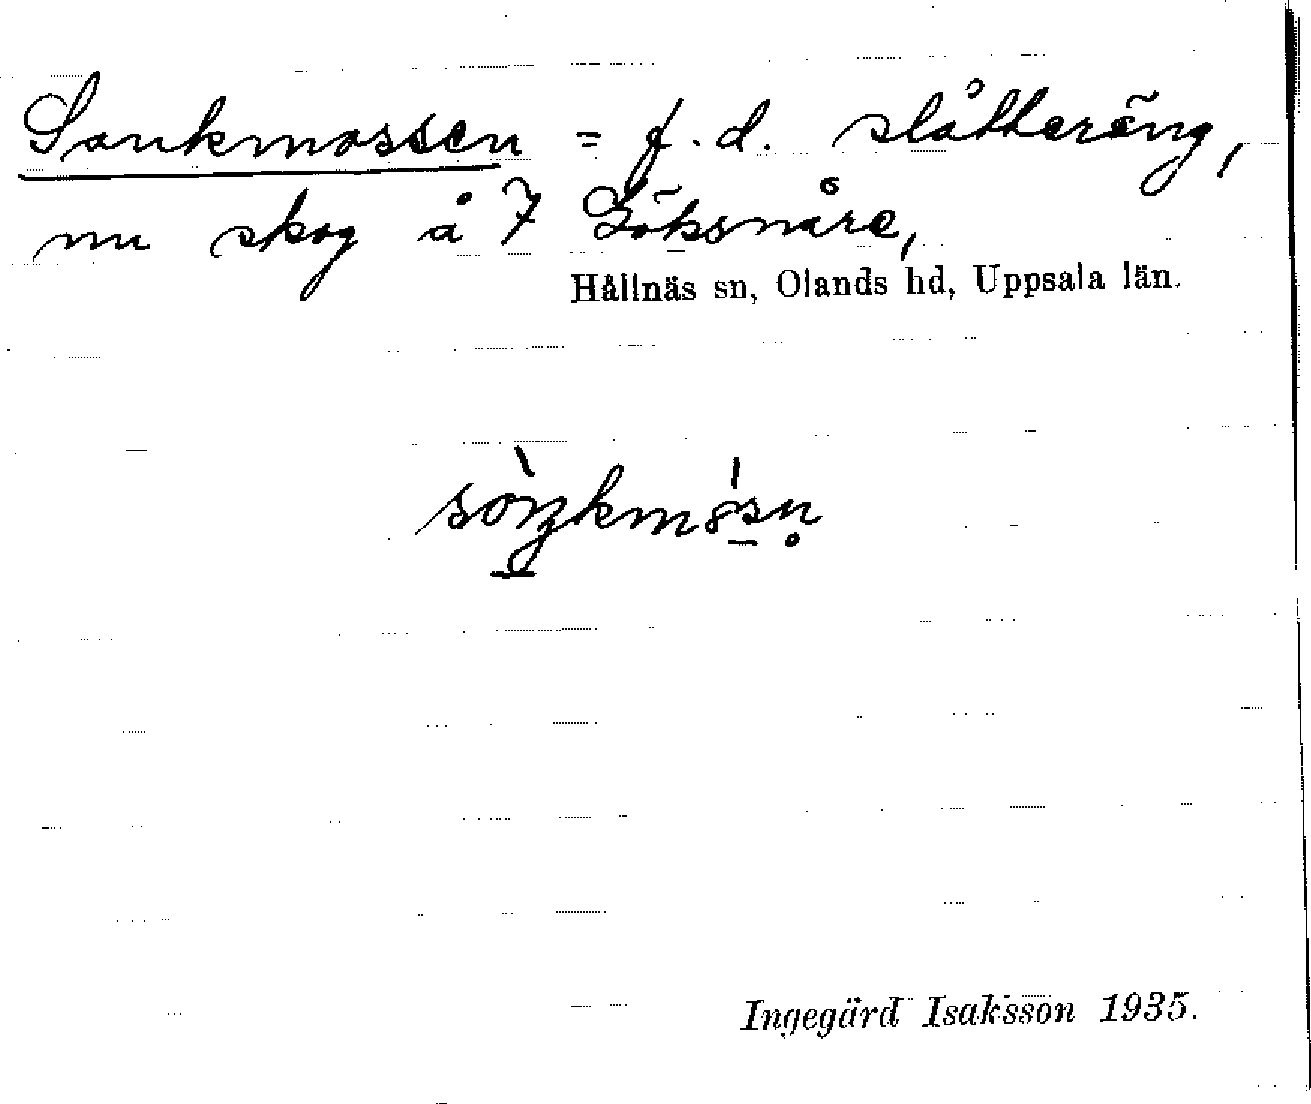 Sankmossen = f.d. slåtteräng,
nu skog å 7 Göksnåre,
Hållnäs sn, Olands hd, Uppsala län.
Ingegärd Isaksson 1935.